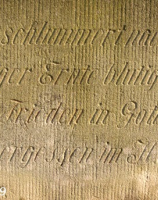 schlummert na
ger Erde blutig
Frieden in Got
ergessen im H